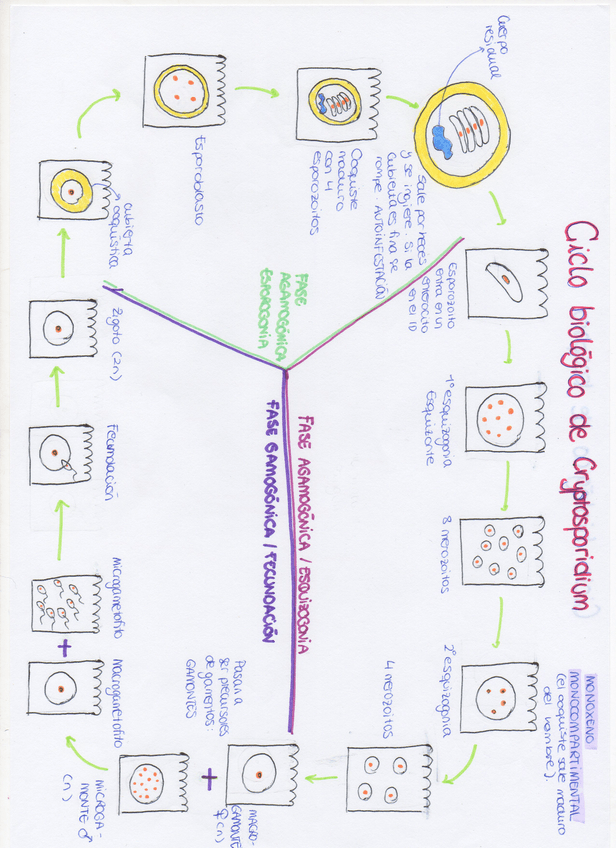 Ciclo biológico de Cryptosporidium
MONOXENO
MONOCOMPARTIMENTAL
(el ooquiste sale maduro
del hombre).
Cuerpo
residual
Sale por heces
y se ingiere. Si la
cubierta es fina se
rompe. AUTOINFESTACIÓN
Esporozoito
entra en un
enterocito
en el ID
1º esquizogonia
Esquizonte
8 merozoitos
2º esquizogonia
4 merozoitos
Pasan a
ser precursores
de gametos:
GAMONTES
MACRO-
GAMONTE
♀ (n)
+
MICROGA-
MONTE ♂
(n)
Macrogametofito
+
Microgametofito
Fecundación
Zigoto (2n)
cubierta
ooquística
Esporoblasto
Ooquiste
maduro
con 4
esporozoitos
FASE
AGAMOGÓNICA
ESPOROGONIA
FASE AGAMOGÓNICA / ESQUIZOGONIA
FASE GAMOGÓNICA / FECUNDACIÓN